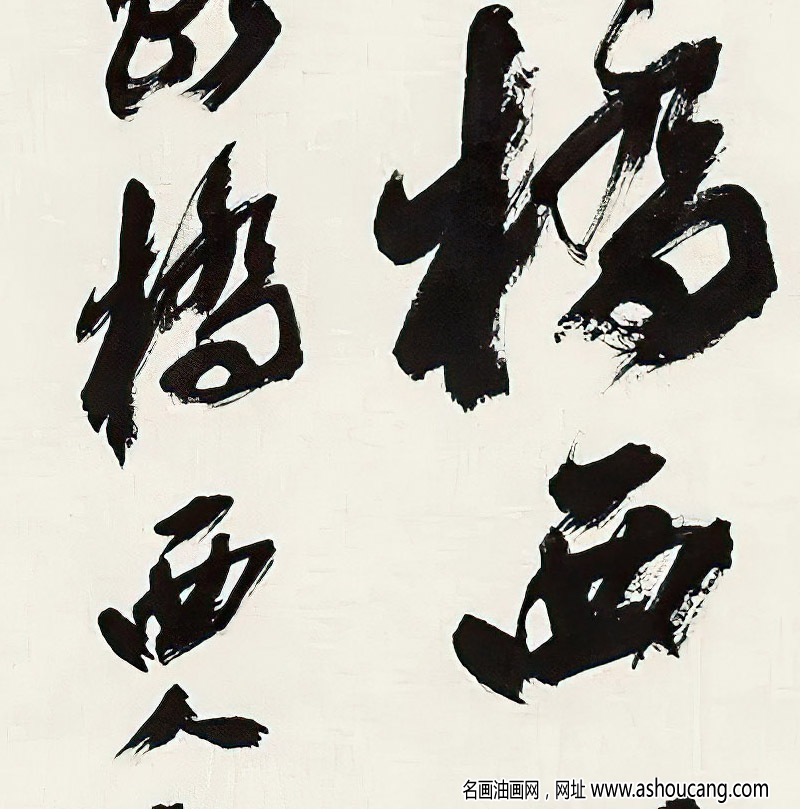 橋西
橋西人
名画油画网，网址 www.ashoucang.com